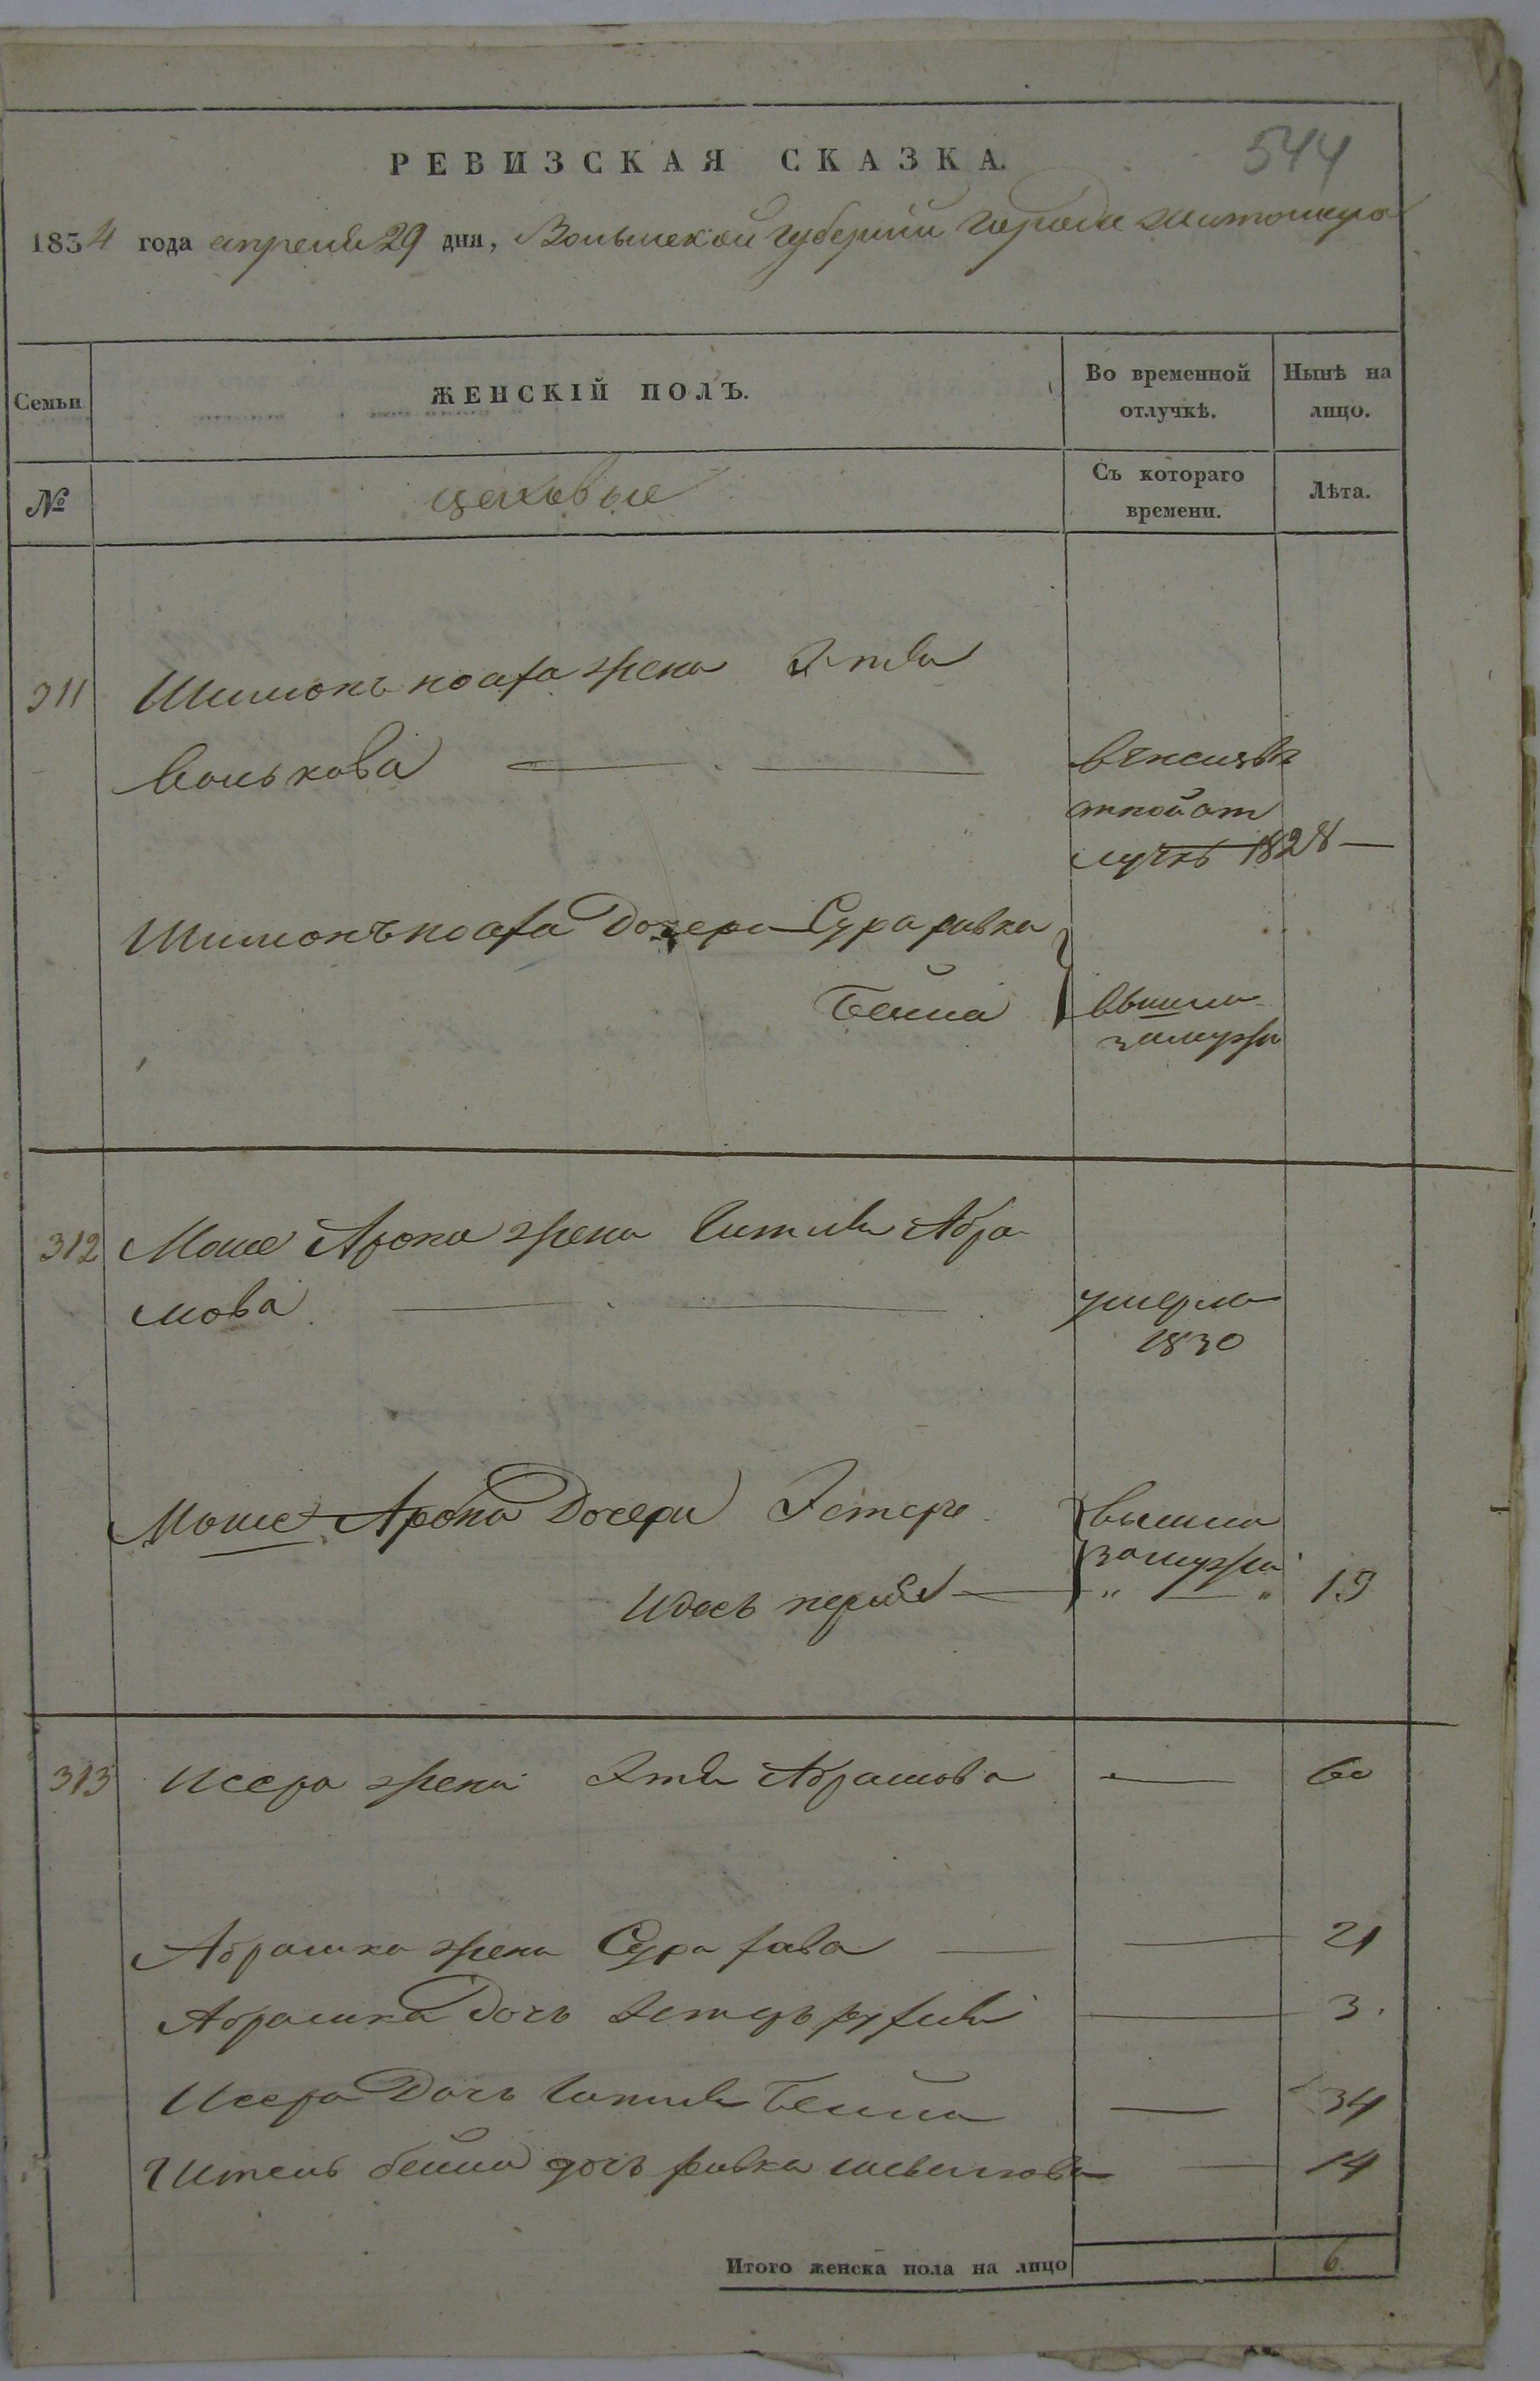 544
РЕВИЗСКАЯ СКАЗКА.
1834 года апреля 29 дня, Волынской губернии города Житомира
Семьи ЖЕНСКІЙ ПОЛЪ. Во временной отлучкѣ. Нынѣ на лицо.
№ цеховые Съ котораго времени. Лѣта.
311 Шимонъ ноаха жена Этля
Волькова
лучкѣ 1828
Шимонъ ноаха Дочери Сура ривка
Бейла вышли
замужъ
312 Моше Арона жена Гитля Абра
мова умерла
1830
Моше Арона Дочери Эстера вышла
замужъ
Идесъ перля " — " 19
313 Исера жена Этля Абрамова — 60
Абрамка жена Сура хава — 21
Абрамка Дочь Эстеръ рухля — 3.
Исера Дочь Гитля Бейла — 34
Гитель бейла дочь ривка — 14
Итого женска пола на лицо 6.